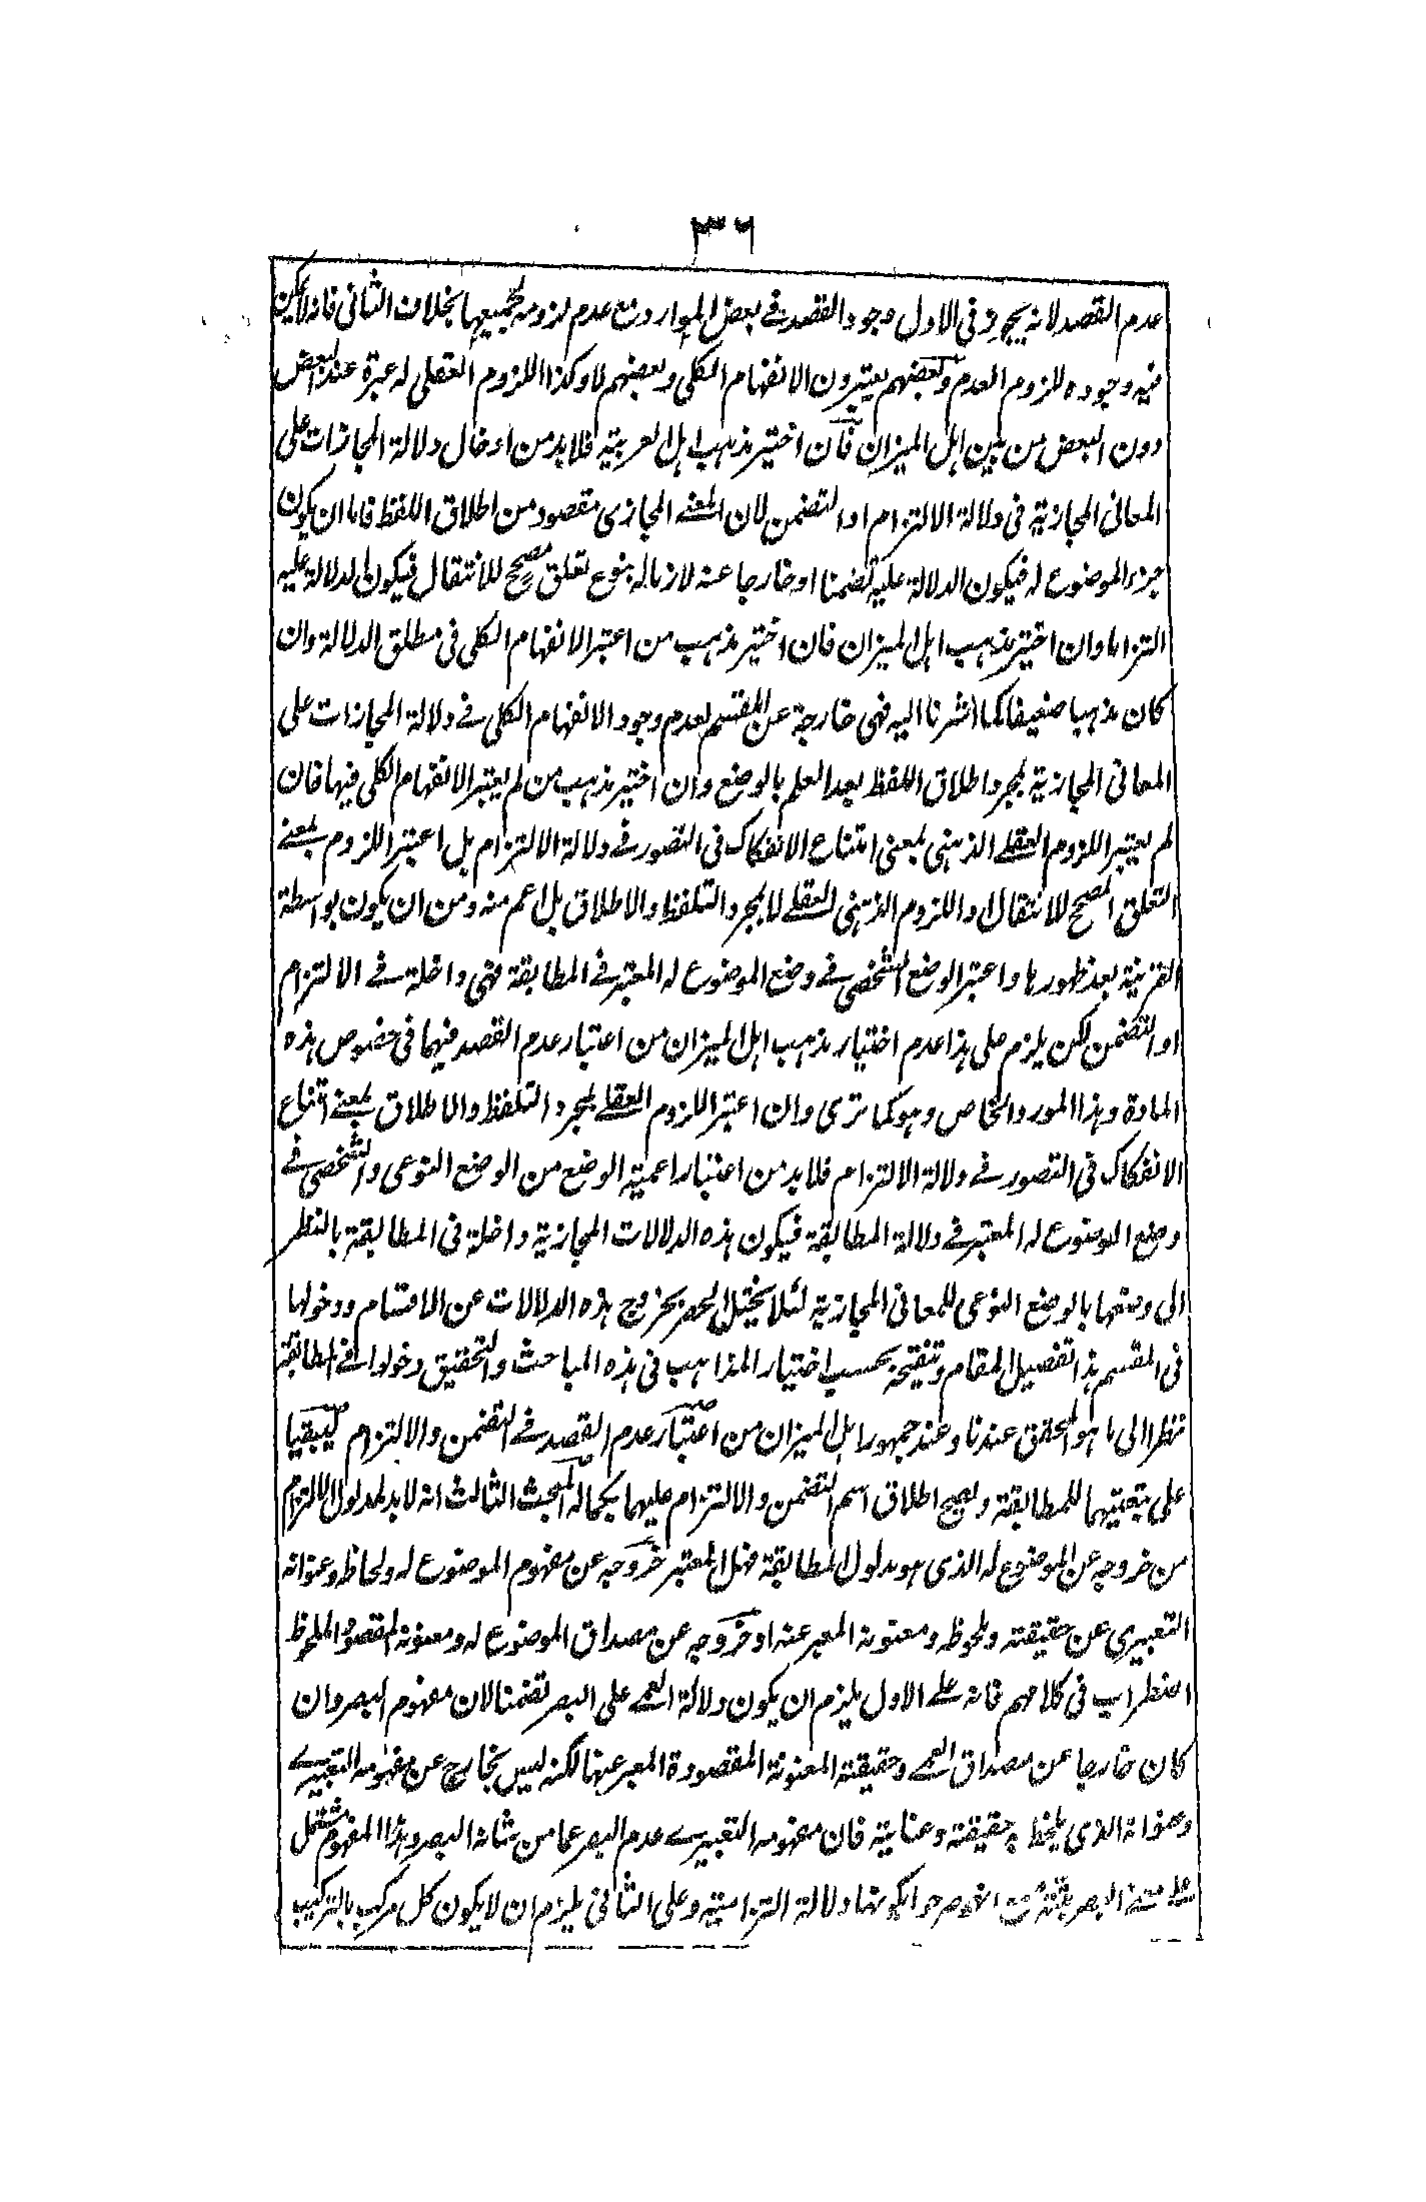 ٣٦
عدم القصد لانه يجوز فى الاول وجود القصد فى بعض الموارد مع عدم لزومه لجميعها بخلاف الثانى فانه لا يمكن
فيه وجوده للزوم العدم وبعضهم يعتبرون الانفهام الكلى وبعضهم لا وكذا اللزوم العقلى له عبرة عند البعض
دون البعض من بين اهل الميزان فان اختير مذهب اهل العربية فلا بد من ادخال دلالة المجازات على
المعانى المجازية فى دلالة الالتزام او التضمن لان المعنى المجازى مقصود من اطلاق اللفظ فاما ان يكون
جزء الموضوع له فيكون الدلالة عليه تضمنا او خارجا عنه لازما له بنوع تعلق مصحح للانتقال فيكون الدلالة عليه
التزاما وان اختير مذهب اهل الميزان فان اختير مذهب من اعتبر الانفهام الكلى فى مطلق الدلالة وان
كان مذهبا ضعيفا كما اشرنا اليه فهى خارجة عن المقسم لعدم وجود الانفهام الكلى فى دلالة المجازات على
المعانى المجازية بمجرد اطلاق اللفظ بعد العلم بالوضع وان اختير مذهب من لم يعتبر الانفهام الكلى فيها فان
لم يعتبر اللزوم العقلى الذهنى بمعنى امتناع الانفكاك فى التصور فى دلالة الالتزام بل اعتبر اللزوم بمعنى
التعلق المصحح للانتقال او اللزوم الذهنى العقلى لا بمجرد التلفظ والاطلاق بل اعم منه ومن ان يكون بواسطة
القرينة بعد ظهورها واعتبر الوضع الشخصى فى وضع الموضوع له المعتبر فى المطابقة فهى داخلة فى الالتزام
او التضمن لكن يلزم على هذا عدم اختيار مذهب اهل الميزان من اعتبار عدم القصد فيهما فى خصوص هذه
المادة وهذا المورد الخاص وهو كما ترى وان اعتبر اللزوم العقلى بمجرد التلفظ والاطلاق بمعنى امتناع
الانفكاك فى التصور فى دلالة الالتزام فلا بد من اعتبار اعمية الوضع من الوضع النوعى والشخصى فى
وضع الموضوع له المعتبر فى دلالة المطابقة فيكون هذه الدلالات المجازية داخلة فى المطابقة بالنظر
الى وضعها بالوضع النوعى للمعانى المجازية لئلا يختل الحصر بخروج هذه الدلالات عن الاقسام ودخولها
فى المقسم هذا تفصيل المقام وتنقيحه بحسب اختيار المذاهب فى هذه المباحث والتحقيق دخولها فى المطابقة
نظرا الى ما هو المحقق عندنا وعند جمهور اهل الميزان من اعتبار عدم القصد فى التضمن والالتزام ليبقيا
على تبعيتهما للمطابقة ويصح اطلاق اسم التضمن والالتزام عليهما بحاله المبحث الثالث انه لا بد لمدلول الالتزام
من خروجه عن الموضوع له الذى هو مدلول المطابقة فهل المعتبر خروجه عن مفهوم الموضوع له ولحاظه وعنوانه
التعبيرى عن حقيقته وملحوظه ومعنونه المعبر عنه او خروجه عن مصداق الموضوع له ومعنونه المقصود الملحوظ
اضطراب فى كلامهم فانه على الاول يلزم ان يكون دلالة العمى على البصر تضمنا لان مفهوم البصر وان
كان خارجا عن مصداق العمى وحقيقته المعنونة المقصودة المعبر عنها لكنه ليس بخارج عن مفهومه التعبيرى
وعنوانه الذى يلحظ به حقيقته وعنايته فان مفهومه التعبيرى عدم البصر عما من شانه البصر وهذا المفهوم مشتمل
على معنى البصر مع انهم صرحوا بكونها دلالة التزامية وعلى الثانى يلزم ان لا يكون كل مركب بالتركيب